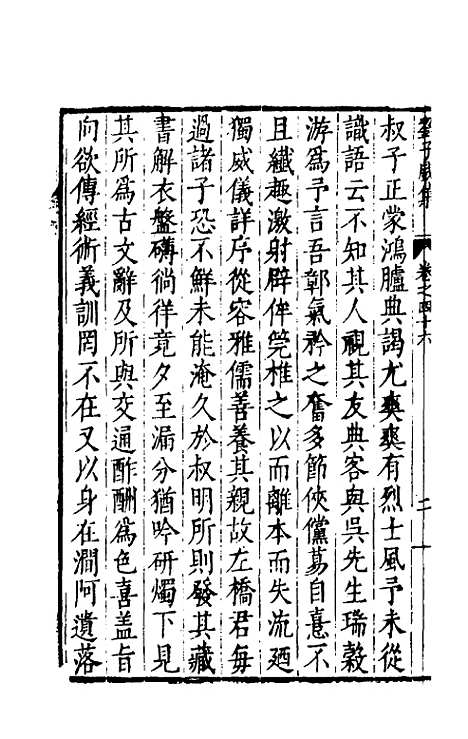 劉子威集 卷之四十六 二
叔子正蒙鴻臚典謁尤爽爽有烈士風予未從
識語云不知其人視其友典客與吳先生瑞穀
游為予言吾鄣氣矜之奮多節俠儻募自憙不
且纖趣激射辟倅筦椎之以而離本而失流廼
獨威儀詳序從容雅儒善養其親故左橋君每
過諸子恐不鮮未能淹久於叔明所則發其藏
書解衣盤礡徜徉竟夕至漏分猶吟研燭下見
其所為古文辭及所與交通酢酬為色喜盖旨
向欲傳經術義訓罔不在又以身在澗阿遺落